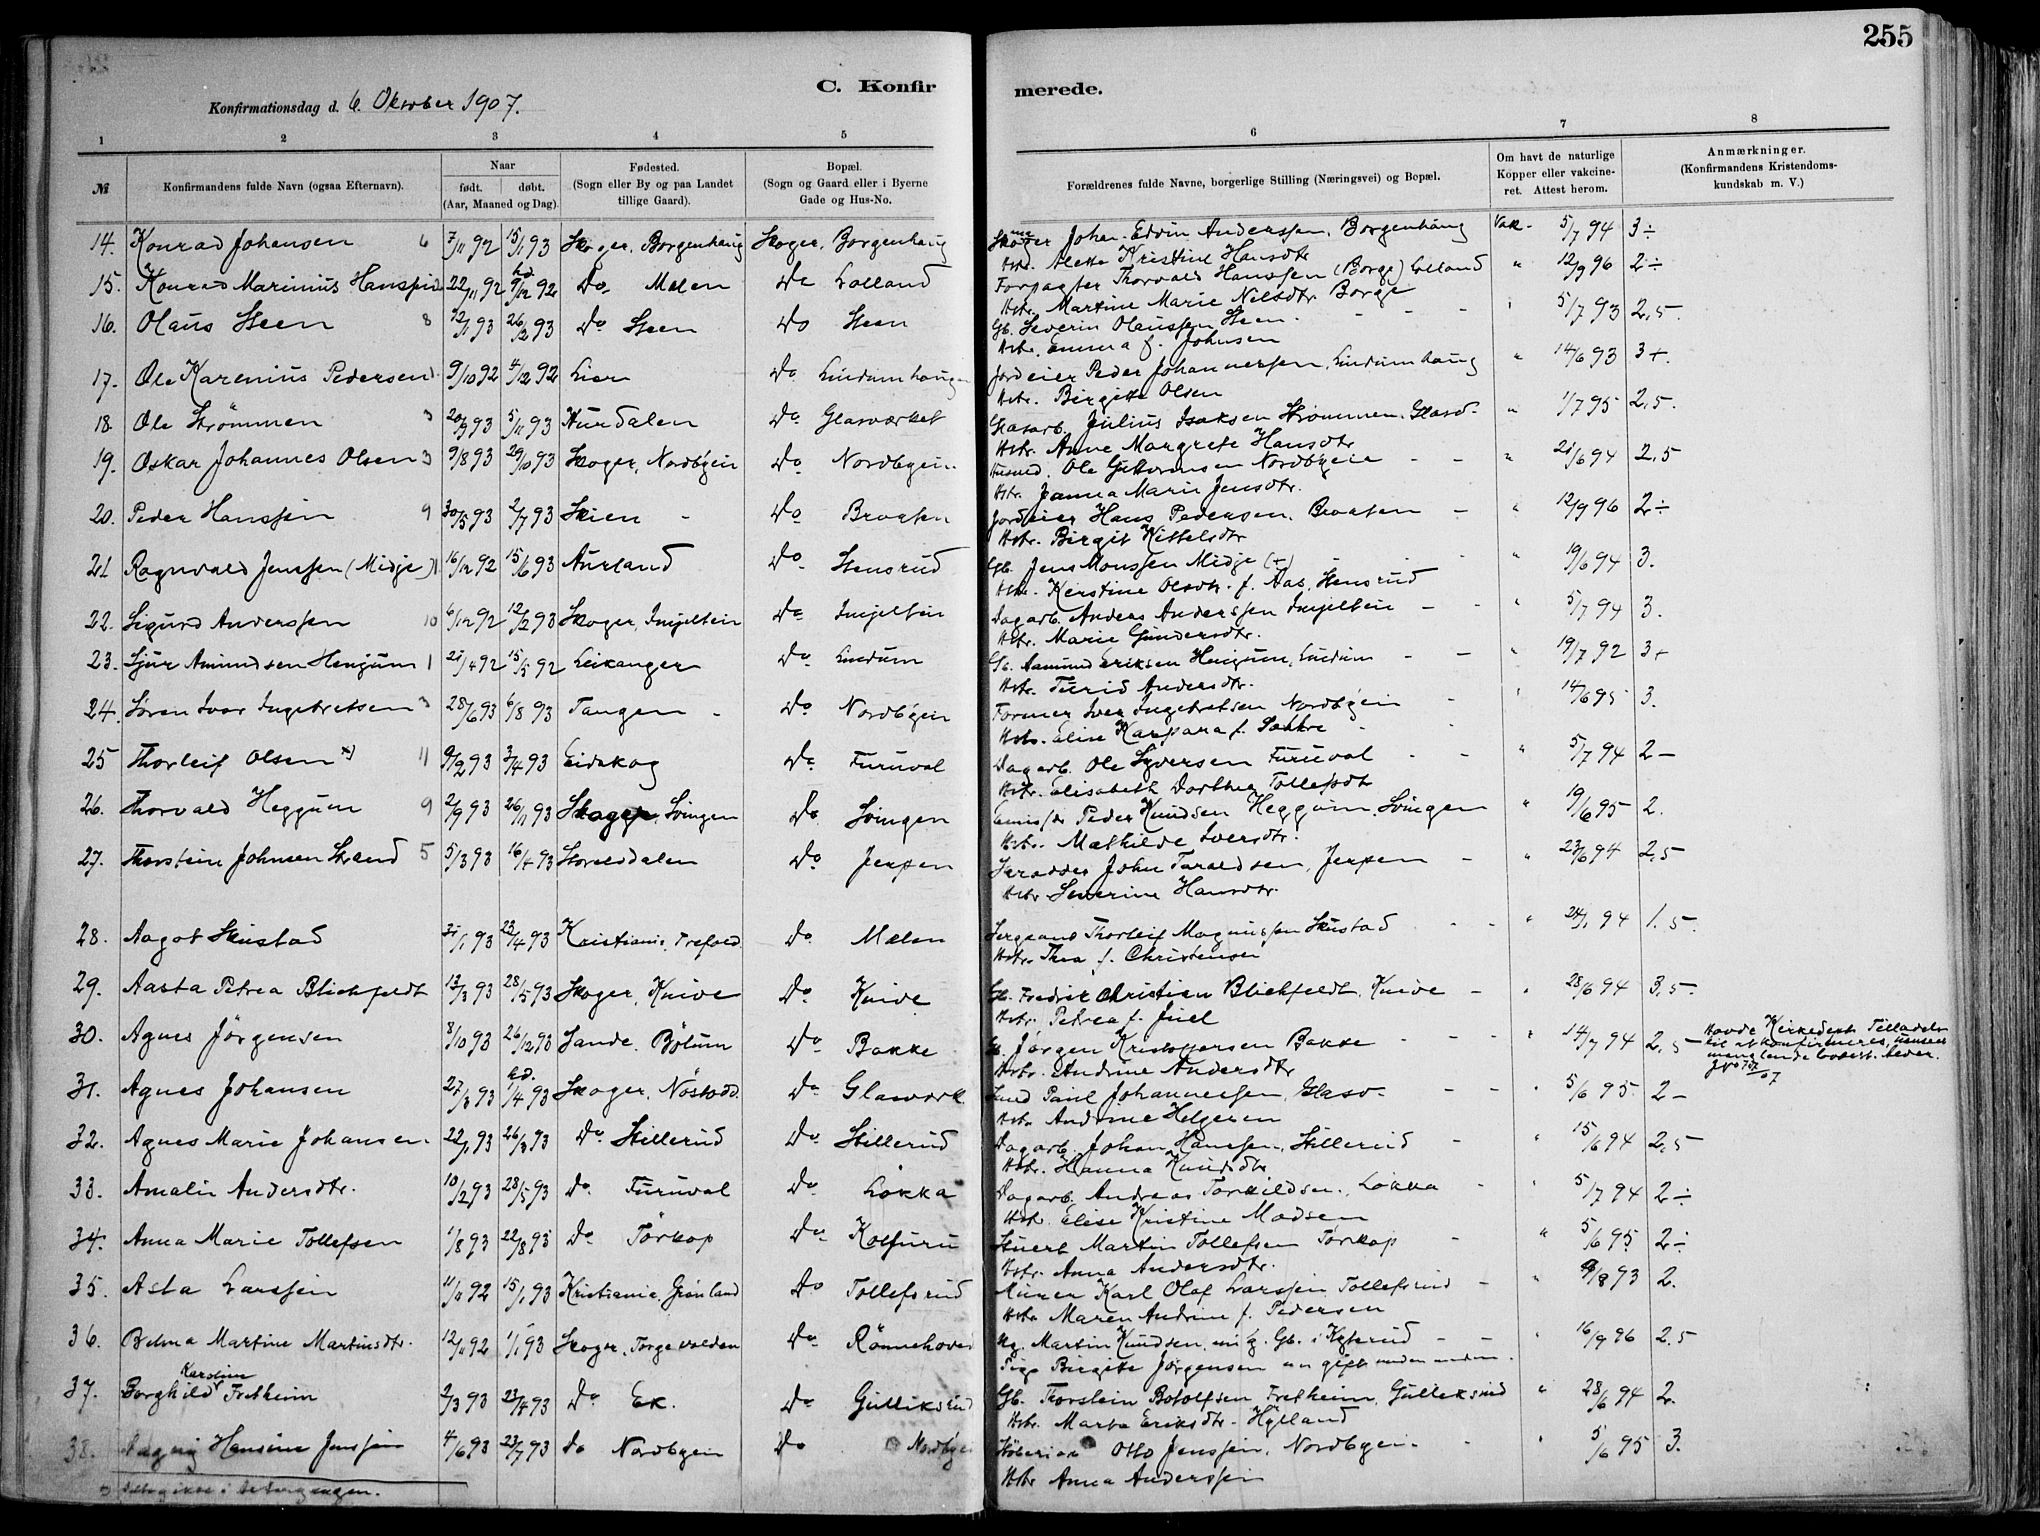 255
C. Konfir merede.
Konfirmationsdag d. 6. Oktober 1907.
1 2 3 4 5 6 7 8
№ Konfirmandens fulde Navn (ogsaa Efternavn). Naar født. døbt. (Aar, Maaned og Dag). Fødested. (Sogn eller By og paa Landet tillige Gaard). Bopæl. (Sogn og Gaard eller i Byerne Gade og Hus-No. Forældrenes fulde Navne, borgerlige Stilling (Næringsvei) og Bopæl. Om havt de naturlige Kopper eller vakcineret. Attest herom. Anmærkninger. (Konfirmandens Kristendomskundskab m. V.)
14. Konrad Johansen 6 7/11 92 15/1 93 Skoger, Borgenhaug Skoger, Borgenhaug Johan Edvin Anderssen, Borgenhaug Vak. 5/7 94 3÷
Hstr. Alette Kristine Hansdtr
15. Konrad Marinius Hanssen 22/11 92 hd. 9/12 92 Do Mælen Do Lolland Forpagter Thorvald Hanssen (Borge) Lolland " 12/9 96 2÷
Hstr. Martine Marie Nilsdtr. Borge
16. Olaus Steen 8 12/1 93 26/2 93 Do Steen Do Steen Gb. Severin Olaussen Steen. " 5/7 93 2,5.
Hstr. Emma f. Johnsen
17. Ole Karenius Pedersen 9/10 92 4/12 92 Lier Do Lindumhaugen Jordeier Peder Johannessen, Lindumhaug " 14/6 93 3+.
Hstr. Birgitte Olsen
18. Ole Strömmen 3 20/9 93 5/11 93 Hurdalen Do Glasværket Glasarb. Julius Isaksen Strömmen, Glasv. " 1/7 95 2,5.
Hstr. Anne Margrete Hansdtr
19. Oskar Johannes Olsen 3 9/8 93 29/10 93 Skoger, Nordbÿein Do Nordbÿein Husmd. Ole Guttormsen Nordbÿein " 21/6 94 2,5
Hstr. Janna Marie Jensdtr.
20. Peder Hanssen 9 30/5 93 2/7 93 Skien Do Braaten Jordeier Hans Pedersen, Braaten " 12/9 96 2÷
Hstr. Birgit Kittelsdtr
21 Ragnvald Jenssen (Midje) 1 16/12 92 15/6 93 Aurland Do Stensrud Gb. Jens Monssen Midje (+) " 19/6 94 3.
Hstr. Kerstine Olsdtr. f. Aas, Stensrud
22. Sigurd Anderssen 10 6/12 92 12/2 93 Skoger, Imjeltein Do Imjeltein Dagarb. Anders Anderssen Imjeltein " 5/7 94 3.
Hstr. Marie Gundersdtr.
23. Sjur Amundsen Henjum 1 21/4 92 15/5 92 Leikanger Do Lindum Gb. Aamund Eriksen Henjum, Lindum " 19/7 92 3+
Hstr. Turid Andersdtr.
24. Søren Ivar Ingebretsen 3 28/6 93 6/8 93 Tangen Do Nordbÿein Former Iver Ingebretsen Nordbÿein " 14/6 95 3.
Hstr. Elise Kaspara f.
25 Thorleif Olsen x) 11 9/2 93 3/4 93 Eidskog Do Furuval Dagarb. Ole Syversen Furuval " 5/7 94 2 –
Hstr. Elisabeth Dorthea Tollefsdt
26. Thorvald Heggum 9 2/9 93 26/11 93 Skoger, Svingen Do Svingen Peder Knudsen Heggum, Svingen " 19/6 95 2.
Hstr. Mathilde Iversdtr.
27. Thorstein Johnsen Strand 5 5/3 93 16/4 93 Storelvdalen Do Jerpen John Taraldsen, Jerpen " 23/6 94 2,5
Hstr Severine Hansdtr.
28. Aagot Skustad 31/1 93 23/4 93 Kristiania, Trefold. Do Mælen Sergeant Thorleif Magnussen Skustad " 24/1 94 1.5.
Hstr. Thea f. Christensen
29. Aasta Petrea Blichfeldt 13/3 93 28/5 93 Skoger, Knive Do Knive Gb. Fredrik Christian Blichfeldt, Knive " 28/6 94 3,5.
Hstr. Petrea f. Juel
30. Agnes Jörgensen 8/10 93 26/12 93 Sande, Bölum Do Bakke Jørgen Kristoffersen Bakke " 14/7 94 2,5 Havde Kirkedept. Tilladelse til at konfirmeres, uanseet manglende lovbest. Alder.
Hstr. Andrine Andersdtr
31. Agnes Johansen 27/3 93 hd. 1/4 93 Skoger, Nöstodd. Do Glasværk Smed Paul Johannessen, Glasv. " 5/6 95 2 –
Hstr Andrine Helgesen
32. Agnes Marie Johansen. 22/1 93 26/3 93 Do Stillerud Do Stillerud Dagarb. Johan Hanssen, Stillerud " 15/6 94 2,5
Hstr. Hanna Knudsdtr
33. Amalie Andersdtr. 10/2 93 28/5 93 Do Furuval Do Løkka Dagarb. Andreas Torkildsen, Løkka " 5/7 94 2÷
Hstr. Elise Kristine Madsen
34. Anna Marie Tollefsen 1/8 93 22/8 93 Do Törkop Do Kolfuru Stuert Martin Tollefsen Törkop " 5/6 95 2÷
Hstr. Anna Andersdtr.
35. Asta Larssen 11/11 92 15/1 93 Kristiania, Grønland Do Tollefsrud Murer Karl Olaf Larssen Tollefsrud " 9/8 93 2.
Hstr Maren Andrine f. Pedersen
36. Betna Martine Martinsdtr. 12/11 92 1/1 93 Skoger, Torgevolden Do Rönnehoved Ug. Martin Knudsen, nu g. Gb. i Kjøsterud " 16/9 96 2.5
Pige Birgitte Jørgensen nu gift med en anden.
37. Borghild Karoline Fretheim 2/3 93 23/4 93 Do Ek. Do Gulliksrud Gb. Thorstein Botolfsen Fretheim, Gulleksrud " 28/6 94 2.
Hstr. Marta Eriksdtr. Hÿlland
38. Dagny Hansine Jenssen 4/6 93 23/7 93 Do Nordbyein Do Nordbyei Støberiarb. Otto Jenssen, Nordbyein. " 5/6 95 3.
Hstr Anna Anderssen
x)